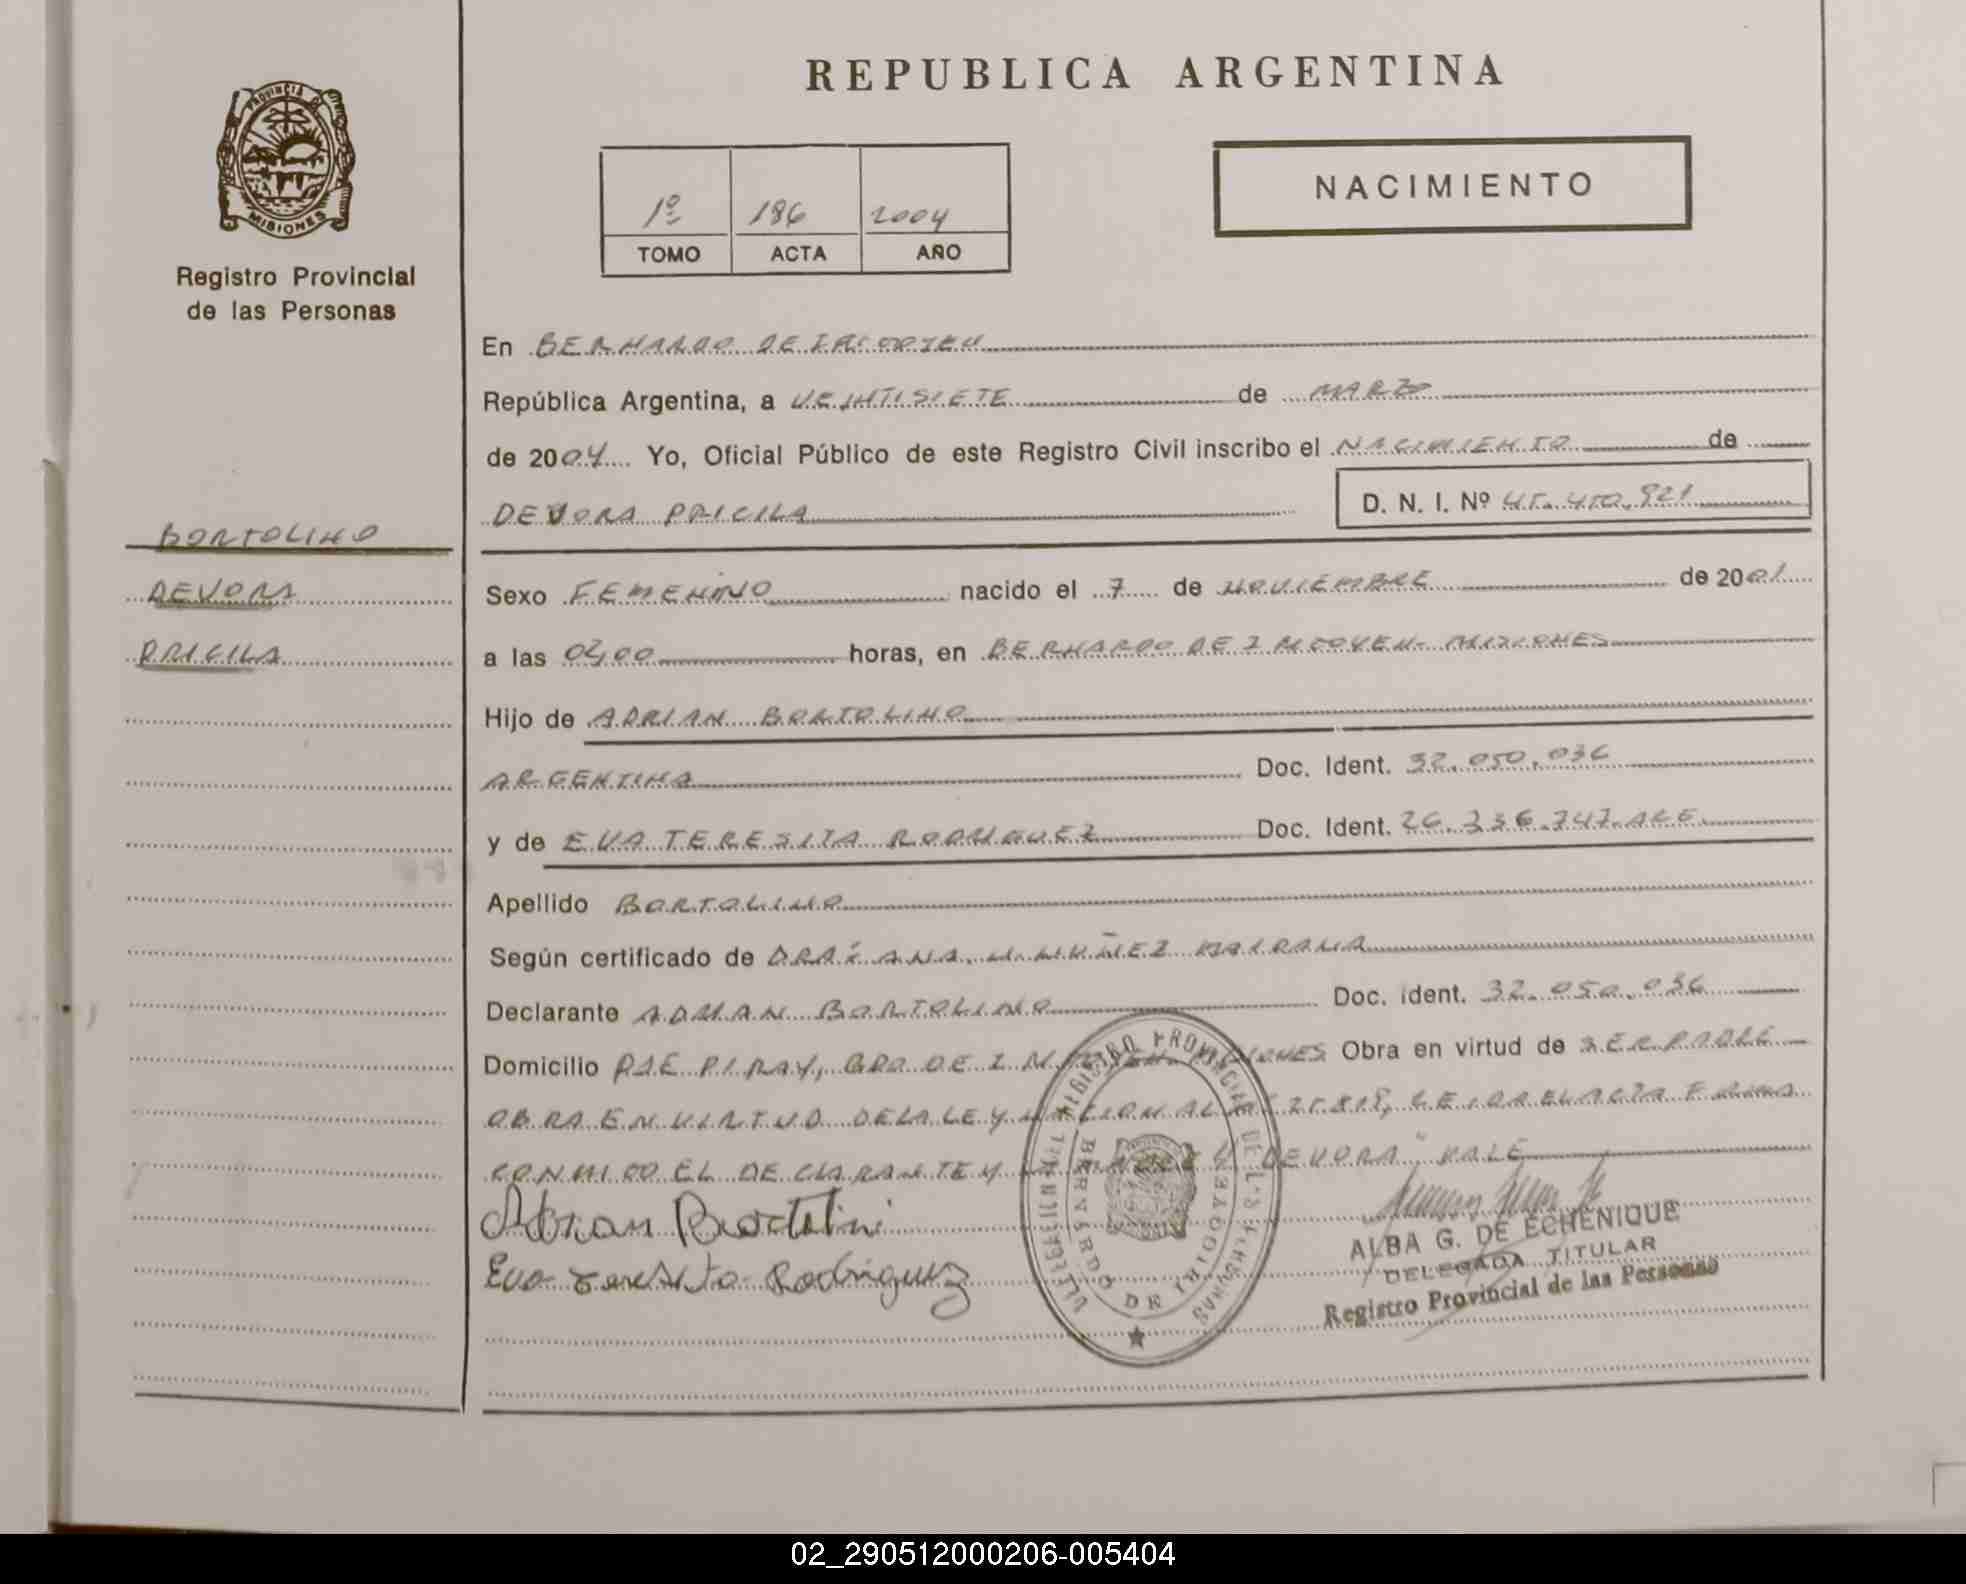 REPUBLICA ARGENTINA
PROVINCIA DE
MISIONES
Registro Provincial
de las Personas
1º 186 2004
TOMO ACTA AÑO
NACIMIENTO
En BERNARDO DE IRIGOYEN
República Argentina, a VEINTISIETE de MARZO
de 2004 Yo, Oficial Público de este Registro Civil inscribo el NACIMIENTO de
DEVORA PRICILA D. N. I. Nº 45.450.821
BORTOLINO
DEVORA
PRICILA
Sexo FEMENINO nacido el 7 de NOVIEMBRE de 2001
a las 04,00 horas, en BERNARDO DE IRIGOYEN - MISIONES
Hijo de ADRIAN BORTOLINO
ARGENTINA Doc. Ident. 32.050.036
y de EVA TERESITA RODRIGUEZ Doc. Ident. 26.336.747 ARG
Apellido BORTOLINO
Según certificado de DRA. ANA NUÑEZ
Declarante ADRIAN BORTOLINO Doc. ident. 32.050.036
Domicilio PJE PIRAY, BDO DE IRIGOYEN MISIONES Obra en virtud de SER PADRE
OBRA EN VIRTUD DE LA LEY NACIONAL Nº 25.818, LEIDA EL ACTA FIRMA
CONMIGO EL DECLARANTE Y LA MADRE "DEVORA" VALE
Adrian Bortolini
Eva Teresita Rodriguez
REGISTRO PROVINCIAL DE LAS PERSONAS
BERNARDO DE IRIGOYEN
ALBA G. DE ECHENIQUE
DELEGADA TITULAR
Registro Provincial de las Personas
02_290512000206-005404